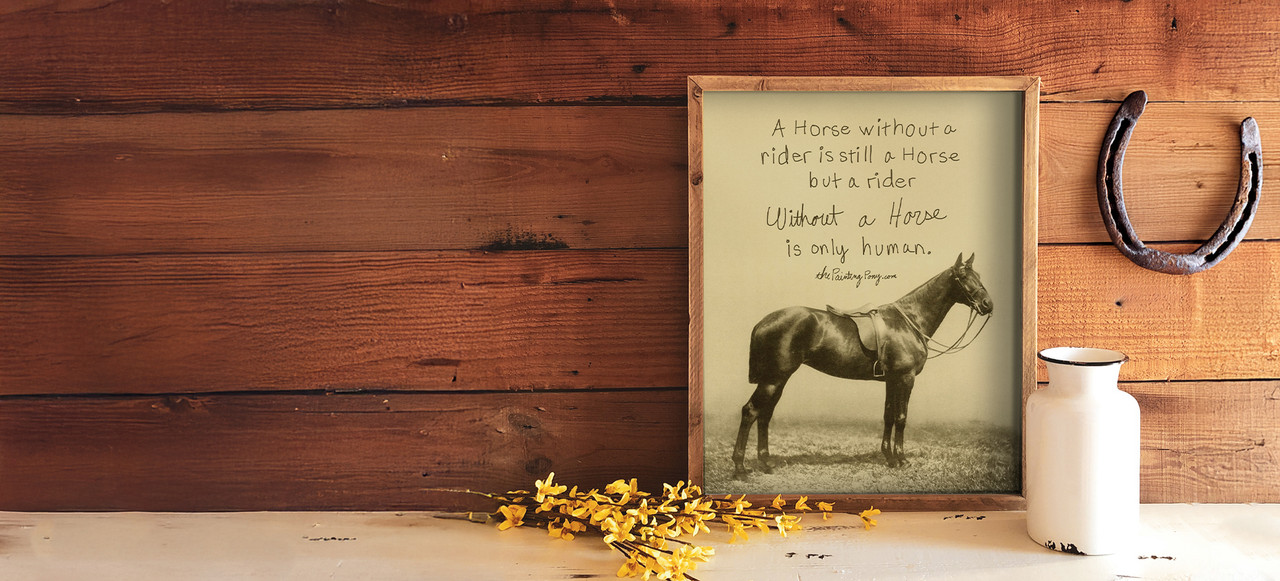 A Horse without a
rider is still a Horse
but a rider
Without a Horse
is only human.
thePaintingPony.com